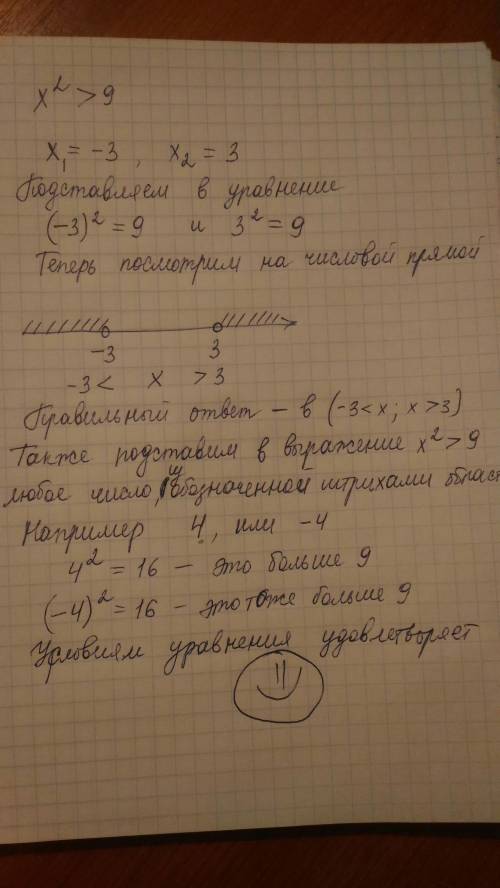 x² > 9
x₁ = -3 , x₂ = 3
Подставляем в уравнение
(-3)² = 9 и 3² = 9
Теперь посмотрим на числовой прямой
-3 3
-3 < x > 3
Правильный ответ – в (-3 < x ; x > 3)
Также подставим в выражение x² > 9
любое число, обозначенной штрихами област
Например 4, или -4
4² = 16 – это больше 9
(-4)² = 16 – это тоже больше 9
Условиям уравнения удовлетворяет